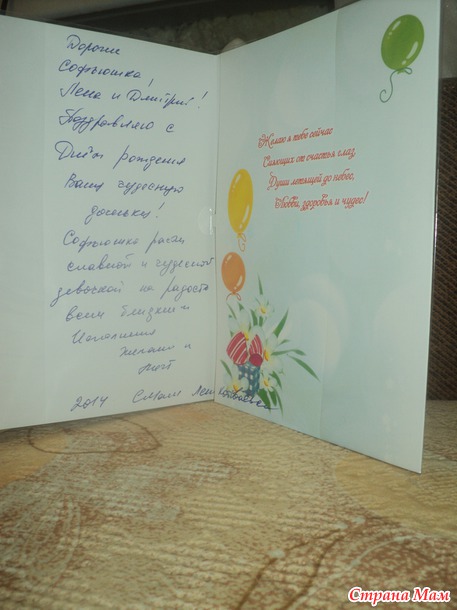 Дорогие
Софьюшка,
Лена и Дмитрий!
Поздравляю с
Днём рождения
Вашу чудесную
доченьку!
Софьюшка расти
славной и чудесной
девочкой на радость
всем близким
Исполнения
желаний и
2014
Желаю я тебе сейчас
Сияющих от счастья глаз,
Души летящей до небес,
Любви, здоровья и чудес!
Страна Мам